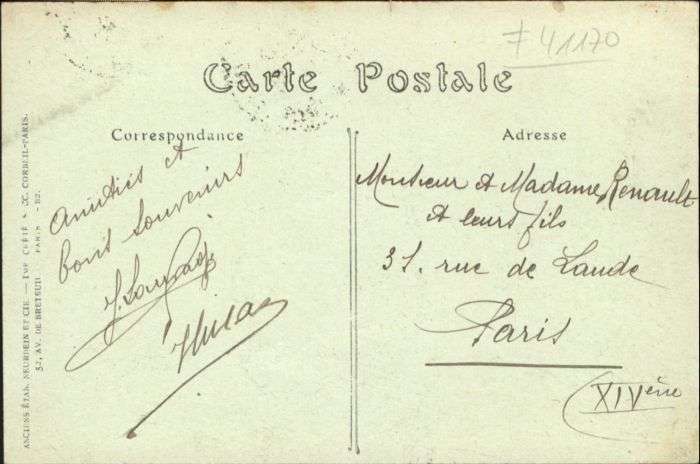 # 41170
Carte Postale
Correspondance
Amitiés et
bons souvenirs
Adresse
Monsieur et Madame Renault
et leurs fils
31. rue de Laude
Paris
(XIVème
ANCIENS ÉTAB. NEURDEIN ET CIE. — IMP. CRÉTÉ S. CORBEIL-PARIS.
52, AV. DE BRETEUIL PARIS